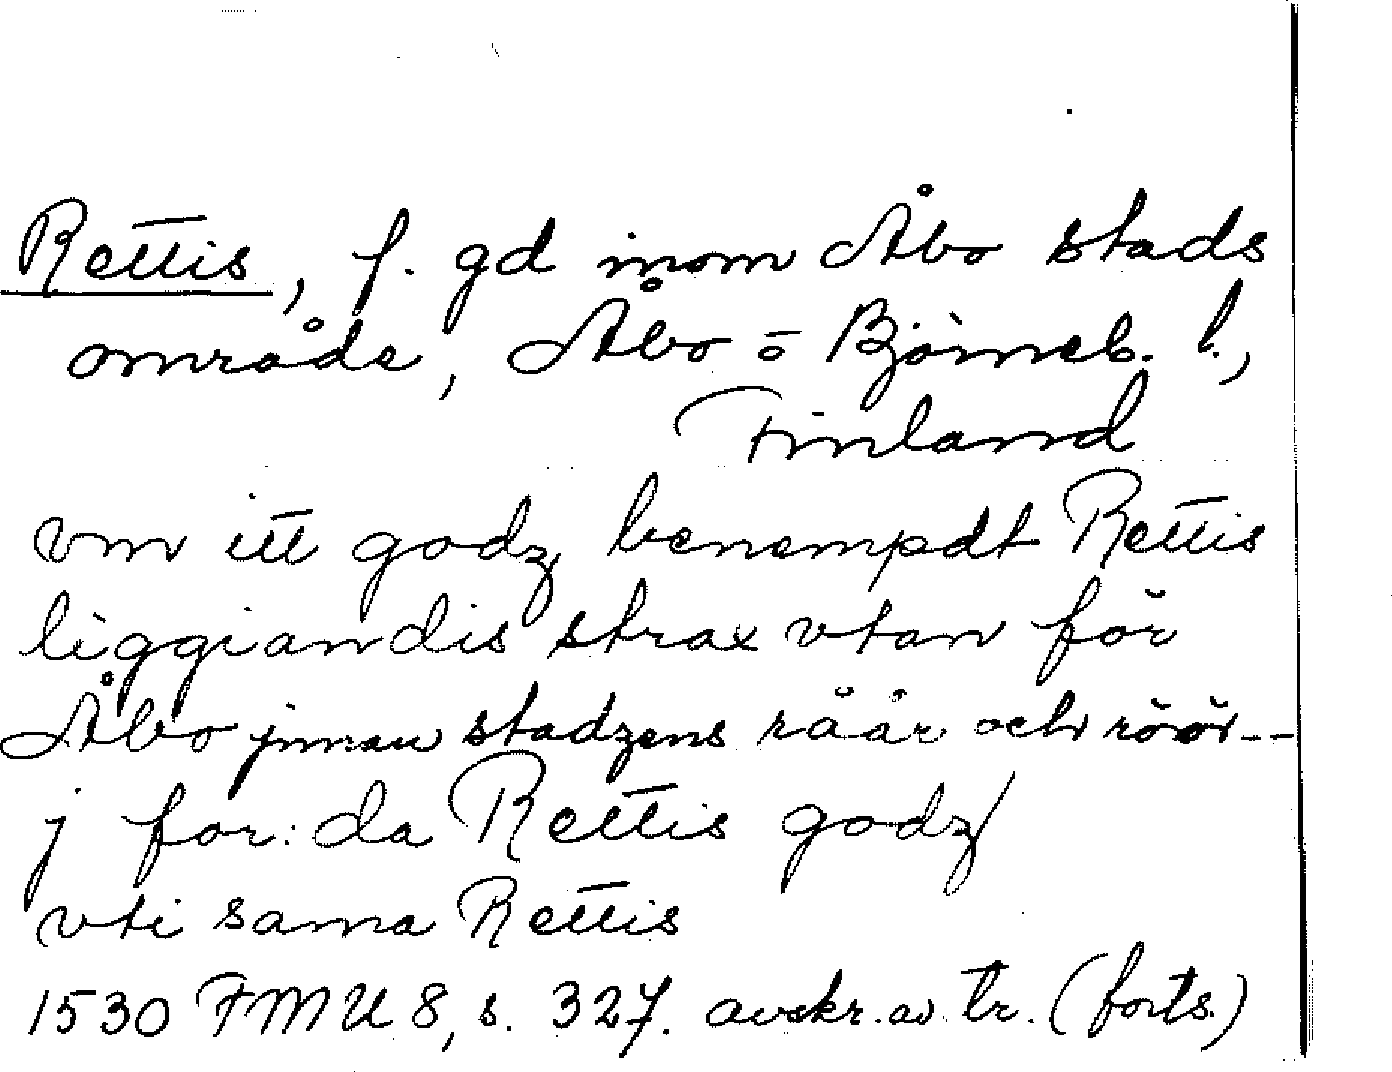 Rettis, f. gd inom Åbo stads
område, Åbo o Björneb. l.,
Finland
vm itt godz benempdt Rettis
liggiandis strax vtan för
Åbo jnnan stadzens råår och röör--
j for:da Rettis godz/
vti sama Rettis
1530 FMU 8, s. 327. avskr. av tr. (forts.)